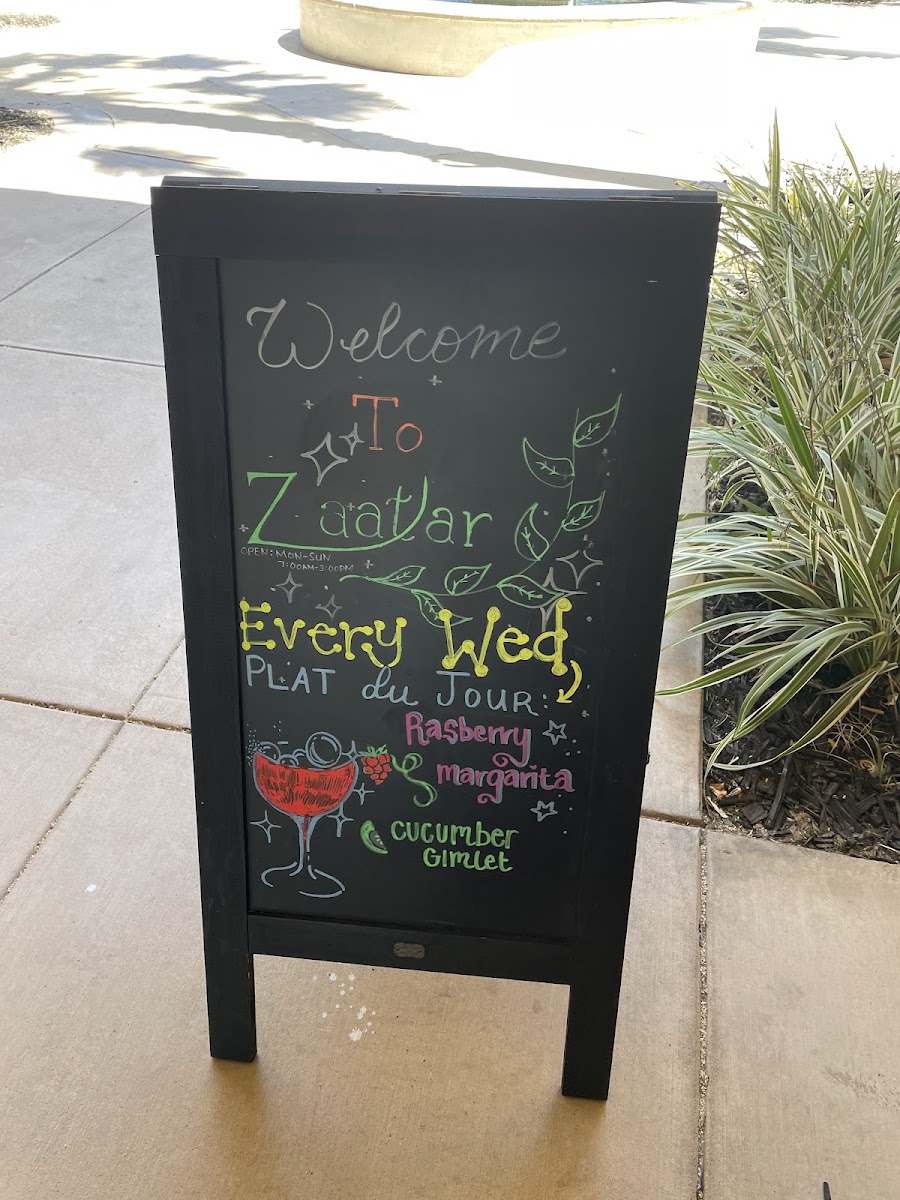 Welcome
To
Zaatar
OPEN: MON-SUN
7:00AM-3:00PM
Every Wed,
PLAT du JOUR:
Rasberry
margarita
CUCUMBER
GIMLET